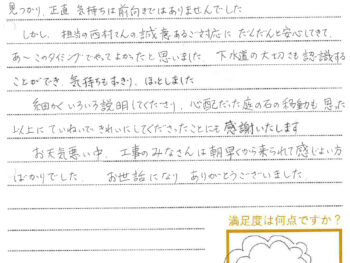 見つかり、正直 気持ちは前向きではありませんでした
しかし、担当の西村さんの誠意あるご対応に だんだんと安心してきて、
あ〜このタイミングでやってよかったと思いました 下水道の大切さも認識する
ことができ 気持ちもすっきり、ほっとしました
細かくいろいろ説明してくださり、心配だった庭の石の移動も思った
以上にていねいできれいにしてくださったことにも感謝いたします
お天気悪い中、工事のみなさんは朝早くから来られて感じよい方
ばかりでした。 お世話になり ありがとうございました
満足度は何点ですか?